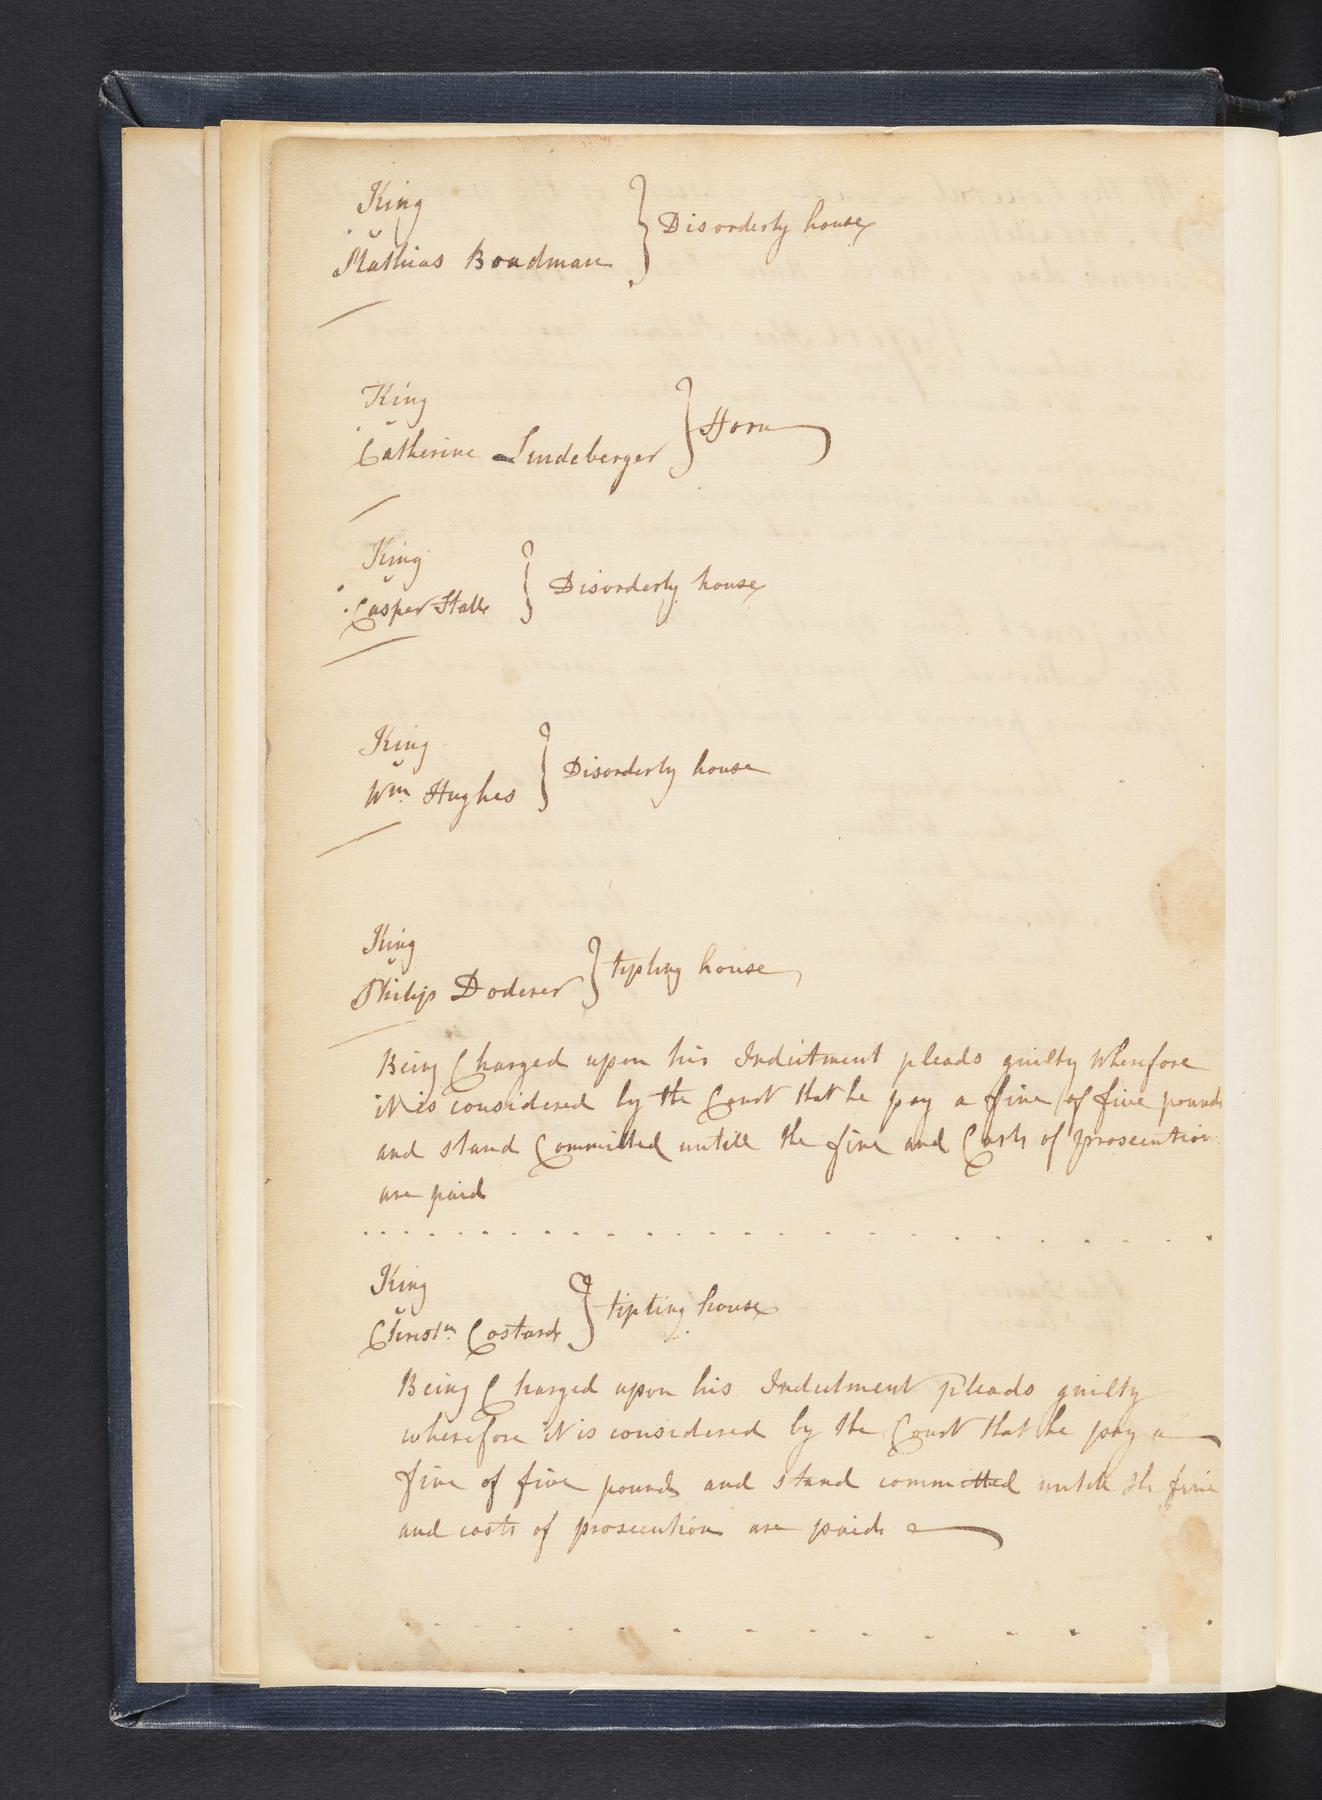 King
v
Mathias Boadman } Disorderly house
King
v
Catherine Lindeberger } Horn
King
v
Casper Stall } Disorderly house
King
v
Wm. Hughes } Disorderly house
King
v
Philip Doderer } tipling house
Being Charged upon his Indictment pleads guilty Wherefore
it is considered by the Court that he pay a fine of five pounds
and stand Committed untill the fine and Costs of prosecution
are paid
King
v
Christn Costard } tipling house
Being Charged upon his Indictment Pleads guilty
wherefore it is considered by the Court that he pay a
fine of five pounds and stand committed untill the fine
and costs of prosecution are paid